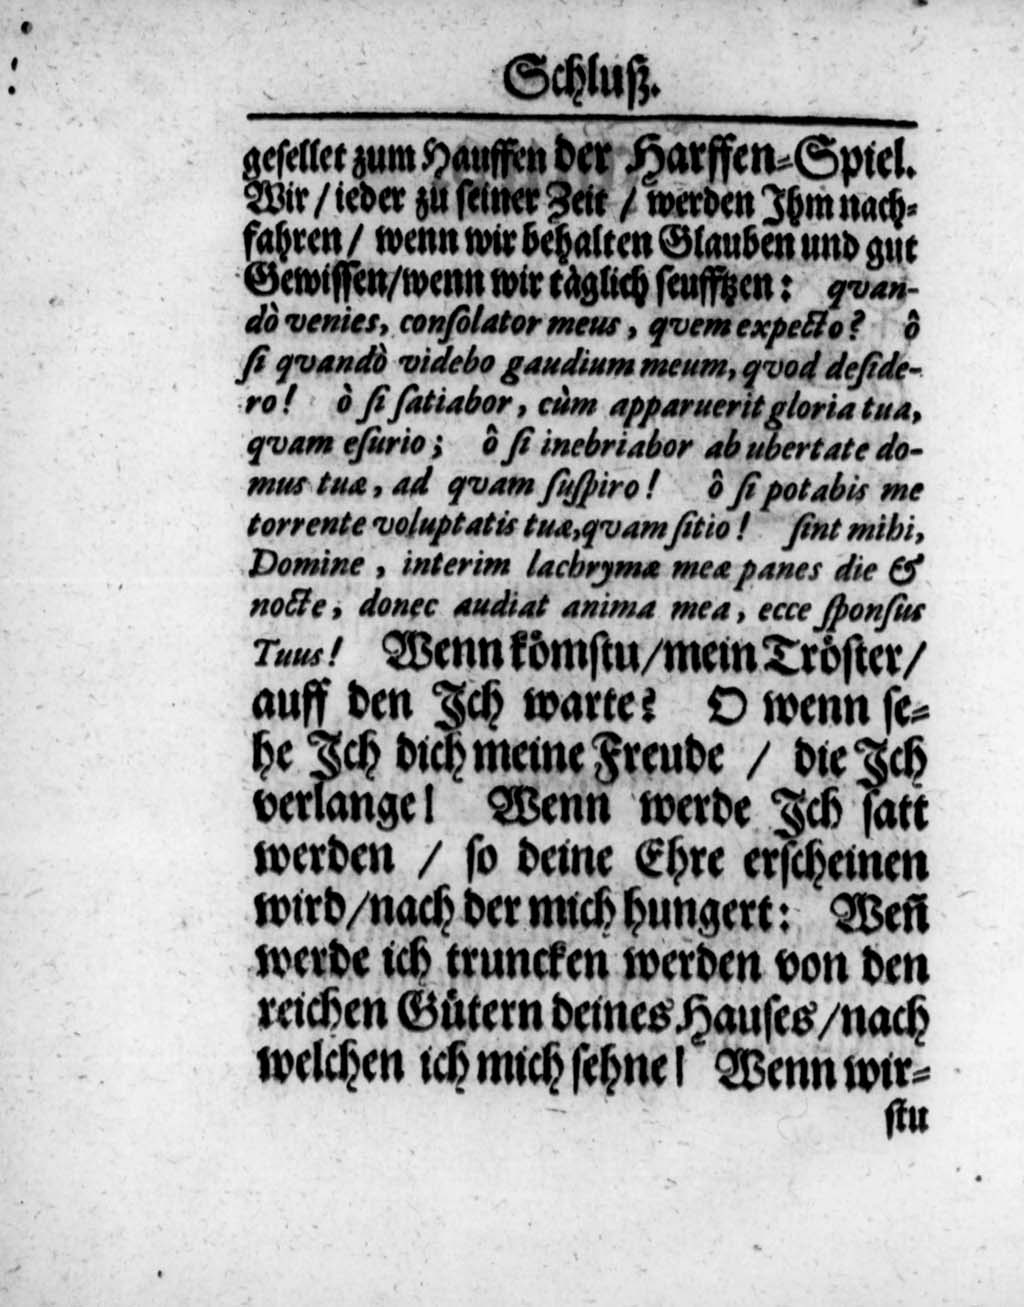 Schluß.
geſellet zum Hauffen der Harffen-Spiel.
Wir / ieder zu ſeiner Zeit / werden Jhm nach-
fahren / wenn wir behalten Glauben und gut
Gewiſſen / wenn wir tàglich ſeufftzen: qvan-
dò venies, conſolator meus, qvem expecto? ô
ſi qvandò videbo gaudium meum, qvod deſide-
ro! ò ſi ſatiabor, cùm apparuerit gloria tua,
qvam eſurio; ô ſi inebriabor ab ubertate do-
mus tuæ, ad qvam ſuſpiro! ô ſi potabis me
torrente voluptatis tuæ, qvam ſitio! ſint mihi,
Domine, interim lachrymæ meæ panes die &
nocte, donec audiat anima mea, ecce ſponſus
Tuus! Wenn koͤmſtu / mein Troͤſter /
auff den Jch warte? O wenn ſe-
he Jch dich meine Freude / die Jch
verlange! Wenn werde Jch ſatt
werden / ſo deine Ehre erſcheinen
wird / nach der mich hungert: Weñ
werde ich truncken werden von den
reichen Guͤtern deines Hauſes / nach
welchen ich mich ſehne! Wenn wir-
ſtu